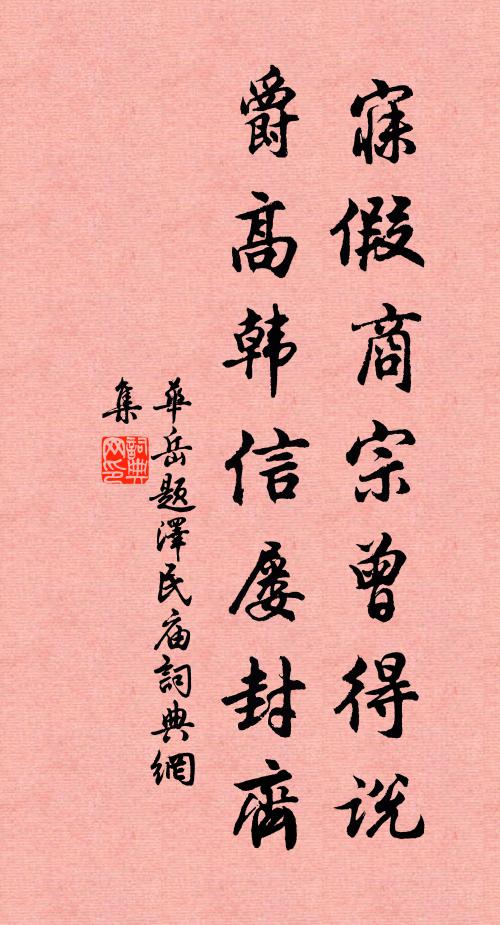 寐假商宗曾得说
爵高韩信屡封齊
華岳题澤民庙詞典網
集
詞典网印